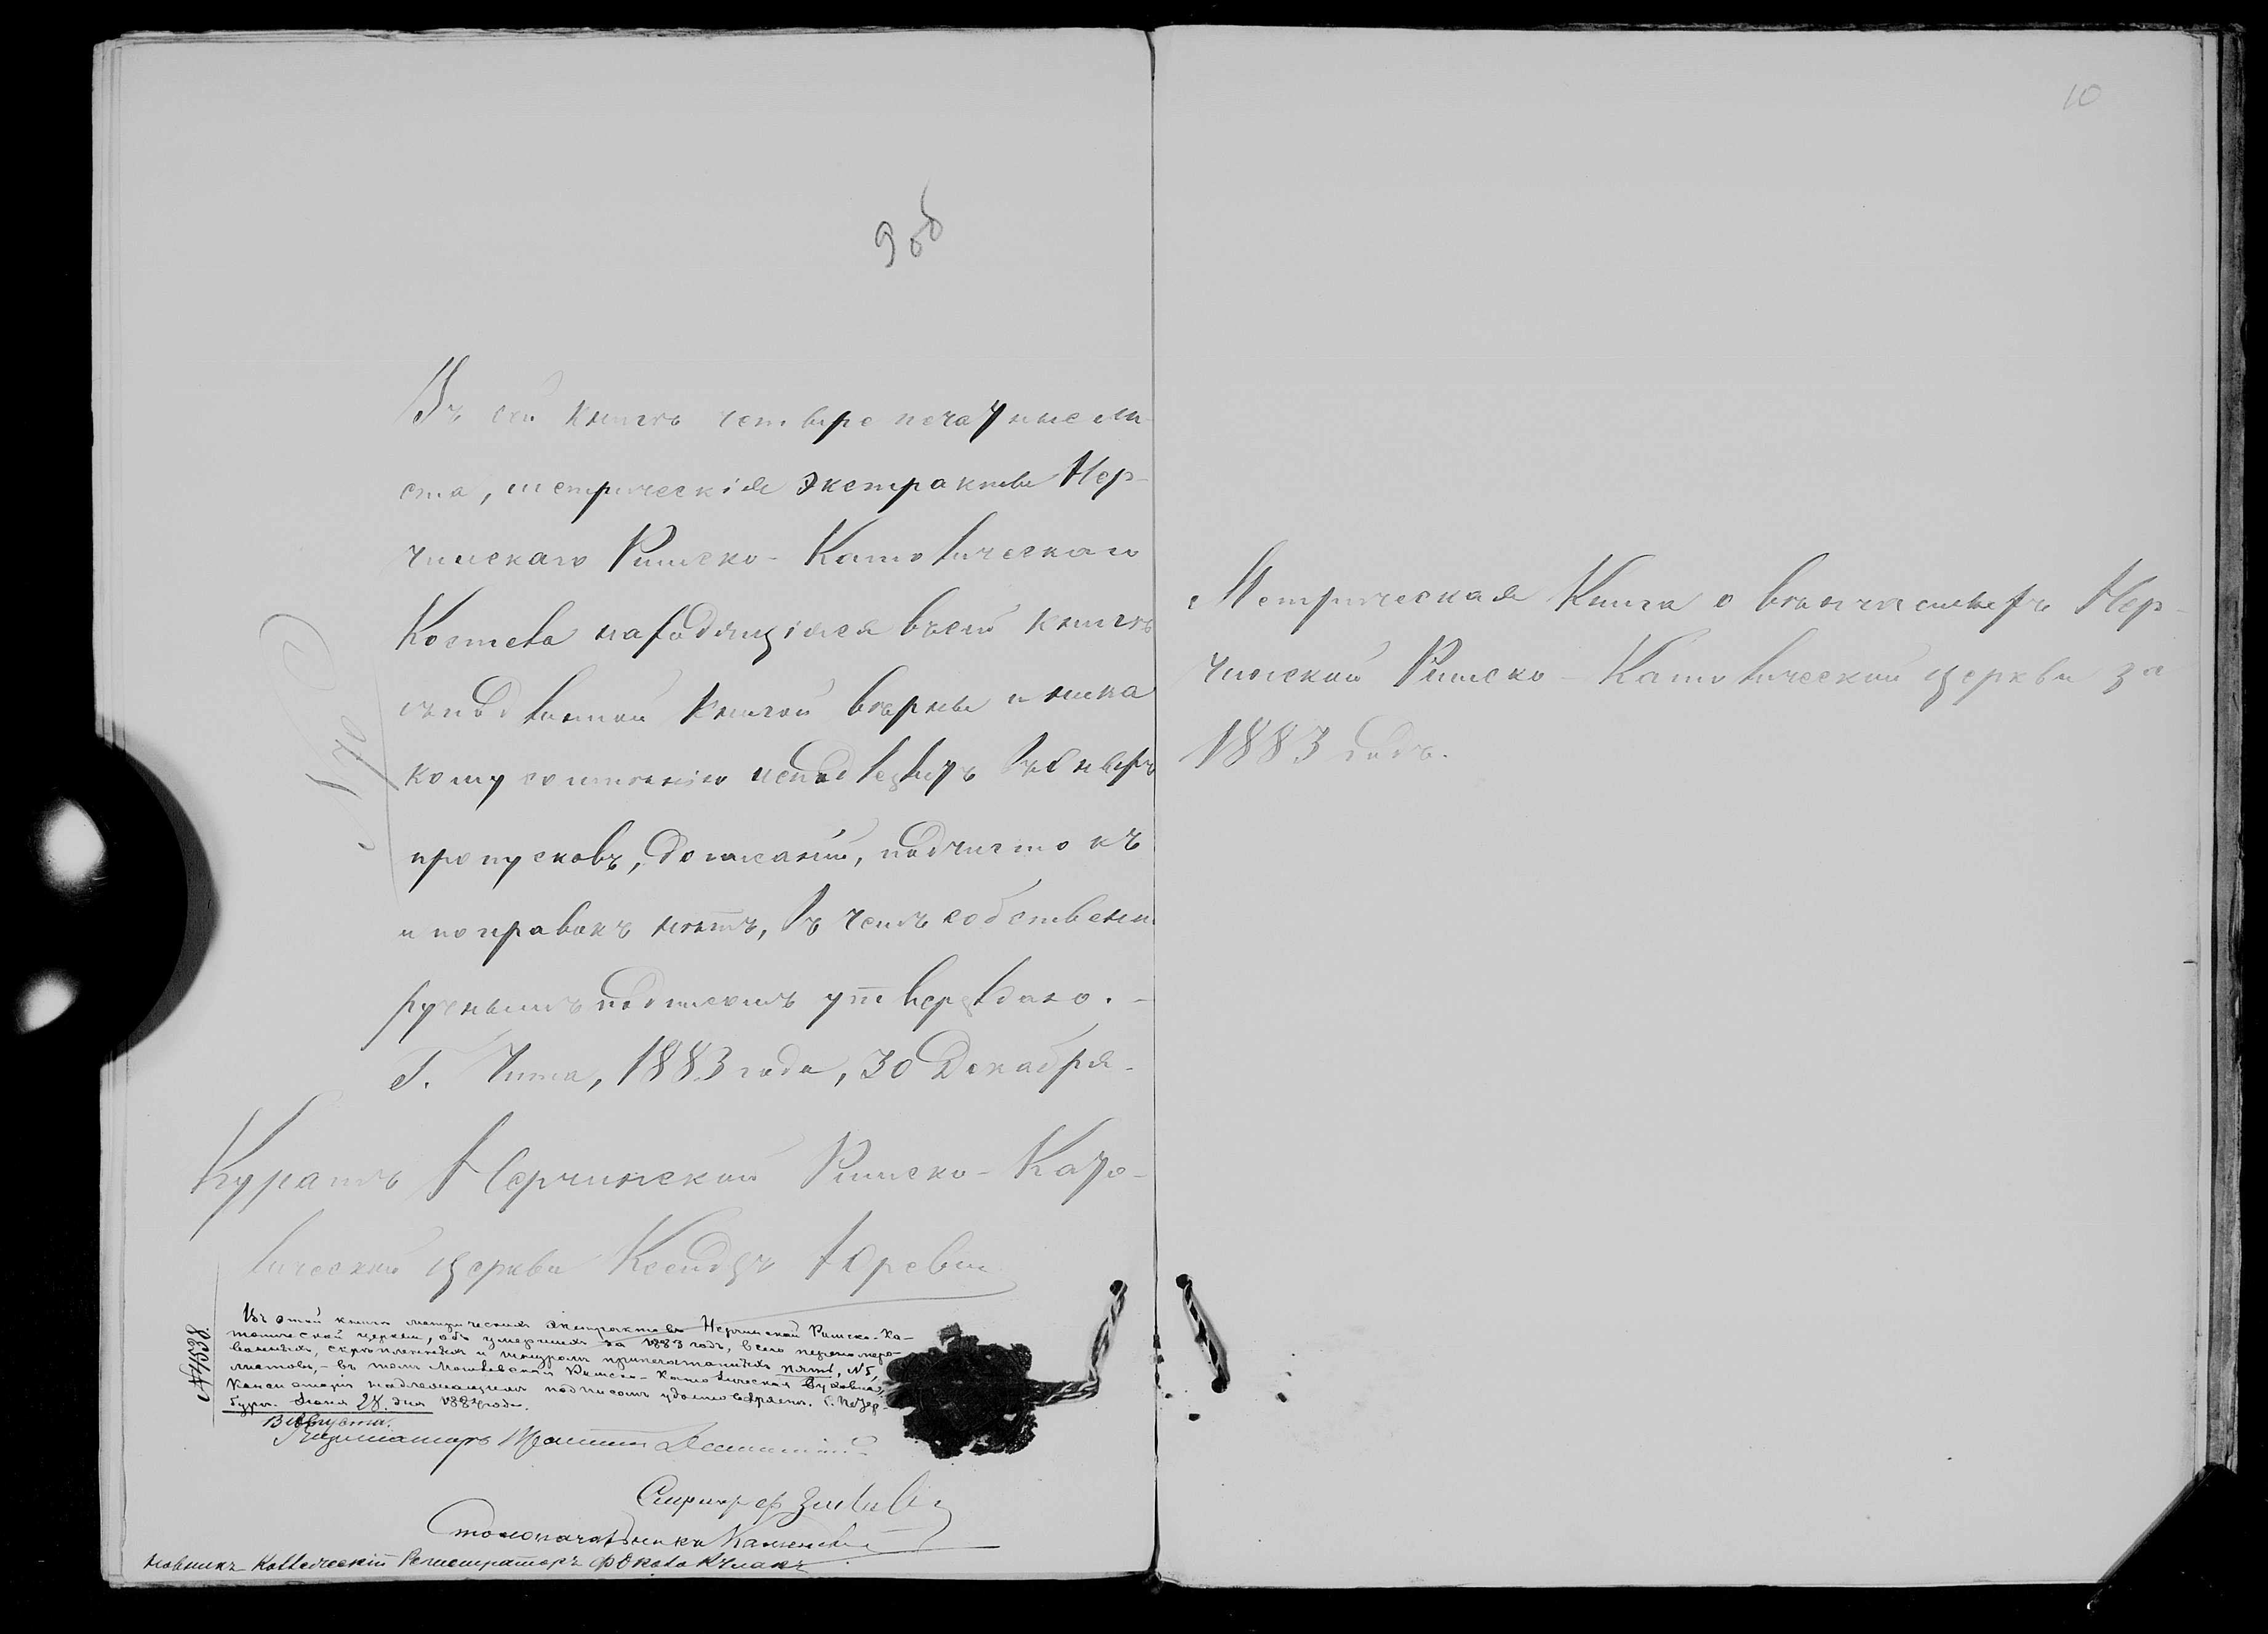 9об
Въ сей книгѣ четыре печатные ли-
ста, метрическія экстракты Нер-
чинскаго Римско-Католическаго
Костела находящіяся въ сей книгѣ
съ подлинной книгой вѣрны и ника
кому сомнѣнію неподлежитъ въ оныхъ
пропусковъ, дописаній, подчистокъ
и поправокъ нѣтъ, въ чемъ собственно
ручнымъ подписомъ утверждаю.-
Г. Чита, 1883 года, 30 Декабря.
Куратъ Нерчинской Римско-Като-
лической церкви Ксендзъ Юревич
№ 4538.
Въ этой книгѣ метрическихъ экстрактовъ Нерчинской Римско-Ка-
толической церкви, объ умершихъ за 1883 годъ, всего перенумеро-
ванныхъ, скрѣпленныхъ и шнуромъ припечатанныхъ пять, №5,
листовъ,- въ томъ Могилевская Римско-Католическая Духовная
Консисторія надлежащимъ подписомъ удостовѣряетъ. С. Петер-
бургъ. Июня 28 дня 1884 года.
13 Августа.
Столоначальника
Коллежскій Регистраторъ
10
Метрическая Книга о вѣнчанныхъ Нер-
чинской Римско-Католической церкви за
1883 годъ.